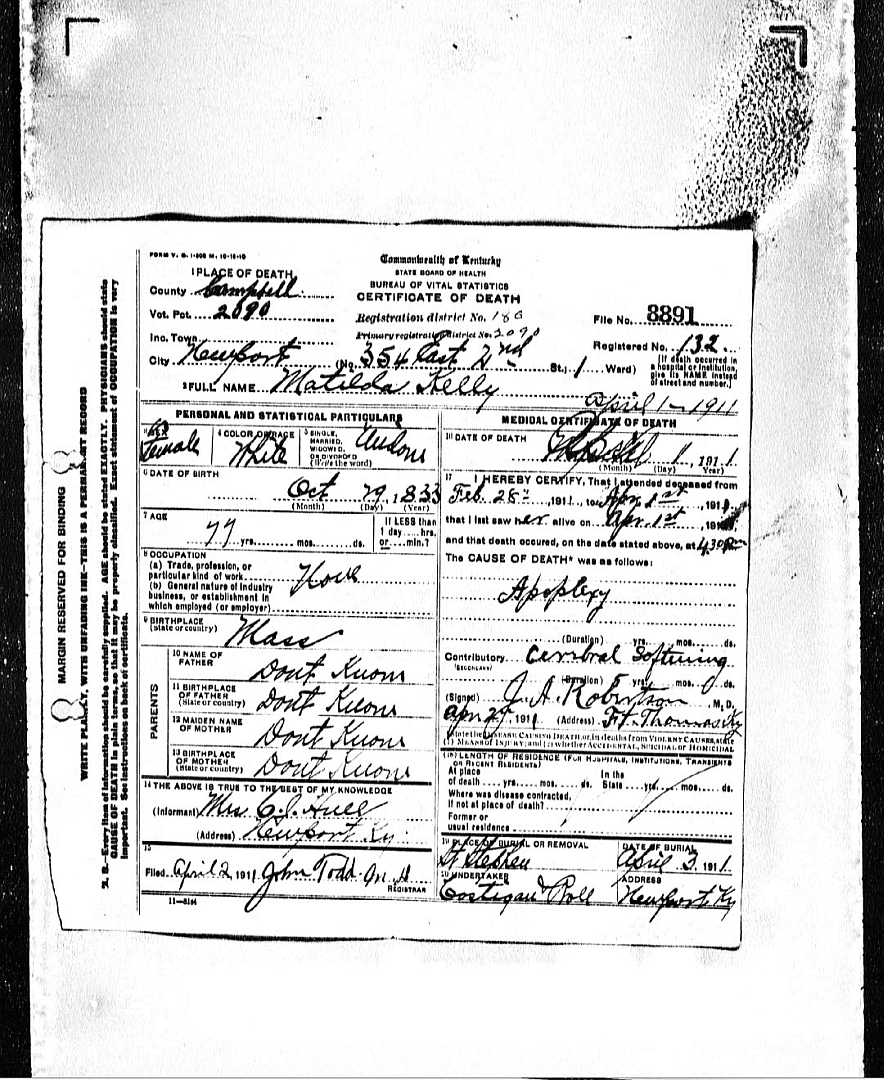 FORM V. S. 1-300 M. 10-10-10
Commonwealth of Kentucky
STATE BOARD OF HEALTH
BUREAU OF VITAL STATISTICS
CERTIFICATE OF DEATH
1 PLACE OF DEATH
County Campbell
Vot. Pct. 2090
Registration district No. 180
Primary registration district No. 2090
File No. 8891
Inc. Town
Registered No. 132
City Newport (No. 354 East 2nd St.; 1 Ward)
(If death occurred in a hospital or institution, give its NAME instead of street and number.)
2 FULL NAME Matilda Kelly
April 1 - 1911
PERSONAL AND STATISTICAL PARTICULARS
3 SEX Female
4 COLOR OR RACE White
5 SINGLE, MARRIED, WIDOWED, OR DIVORCED (Write the word)
6 DATE OF BIRTH
Oct 29, 1833
(Month) (Day) (Year)
7 AGE
77 yrs. mos. ds.
If LESS than 1 day hrs. or min.?
8 OCCUPATION
(a) Trade, profession, or particular kind of work
(b) General nature of industry business, or establishment in which employed (or employer)
9 BIRTHPLACE
(State or country) Mass
PARENTS
10 NAME OF FATHER Dont Know
11 BIRTHPLACE OF FATHER (State or country) Dont Know
12 MAIDEN NAME OF MOTHER Dont Know
13 BIRTHPLACE OF MOTHER (State or country) Dont Know
14 THE ABOVE IS TRUE TO THE BEST OF MY KNOWLEDGE
(Informant) Mrs C. J. Hull
(Address) Newport Ky.
15
Filed April 2 1911 John Todd M.D.
REGISTRAR
11-3184
MEDICAL CERTIFICATE OF DEATH
16 DATE OF DEATH
1, 1911
(Month) (Day) Year)
17 I HEREBY CERTIFY, That I attended deceased from
Feb. 28", 1911, to Apr. 1st, 1911,
that I last saw her alive on Apr. 1st, 191
and that death occured, on the date stated above, at 4.30 Pm
The CAUSE OF DEATH* was as follows:
Apoplexy
(Duration) yrs. mos. ds.
Contributory Cerebral Softening
(SECONDARY)
(Duration) 5 yrs. mos. ds.
(Signed) J. A. Robertson M. D.
Apr 2", 1911 (Address) Ft. Thomas Ky
*State the DISEASE CAUSING DEATH, or, in deaths from VIOLENT CAUSES, state
(1) MEANS OF INJURY; and (2) whether ACCIDENTAL, SUICIDAL or HOMICIDAL
18 LENGTH OF RESIDENCE (FOR HOSPITALS, INSTITUTIONS, TRANSIENTS OR RECENT RESIDENTS)
At place of death yrs. mos. ds.
In the State yrs. mos. ds.
Where was disease contracted,
if not at place of death?
Former or
usual residence
19 PLACE OF BURIAL OR REMOVAL
St Stephen
DATE OF BURIAL
April 3 1911
20 UNDERTAKER
Costigan & Roll
ADDRESS
Newport Ky
MARGIN RESERVED FOR BINDING
WRITE PLAINLY, WITH UNFADING INK—THIS IS A PERMANENT RECORD
N. B.—Every item of information should be carefully supplied. AGE should be stated EXACTLY. PHYSICIANS should state
CAUSE OF DEATH in plain terms, so that it may be properly classified. Exact statement of OCCUPATION is very
important. See instructions on back of certificate.